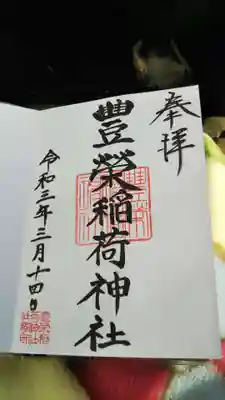 奉拝
豐榮稲荷神社
令和三年三月十四日